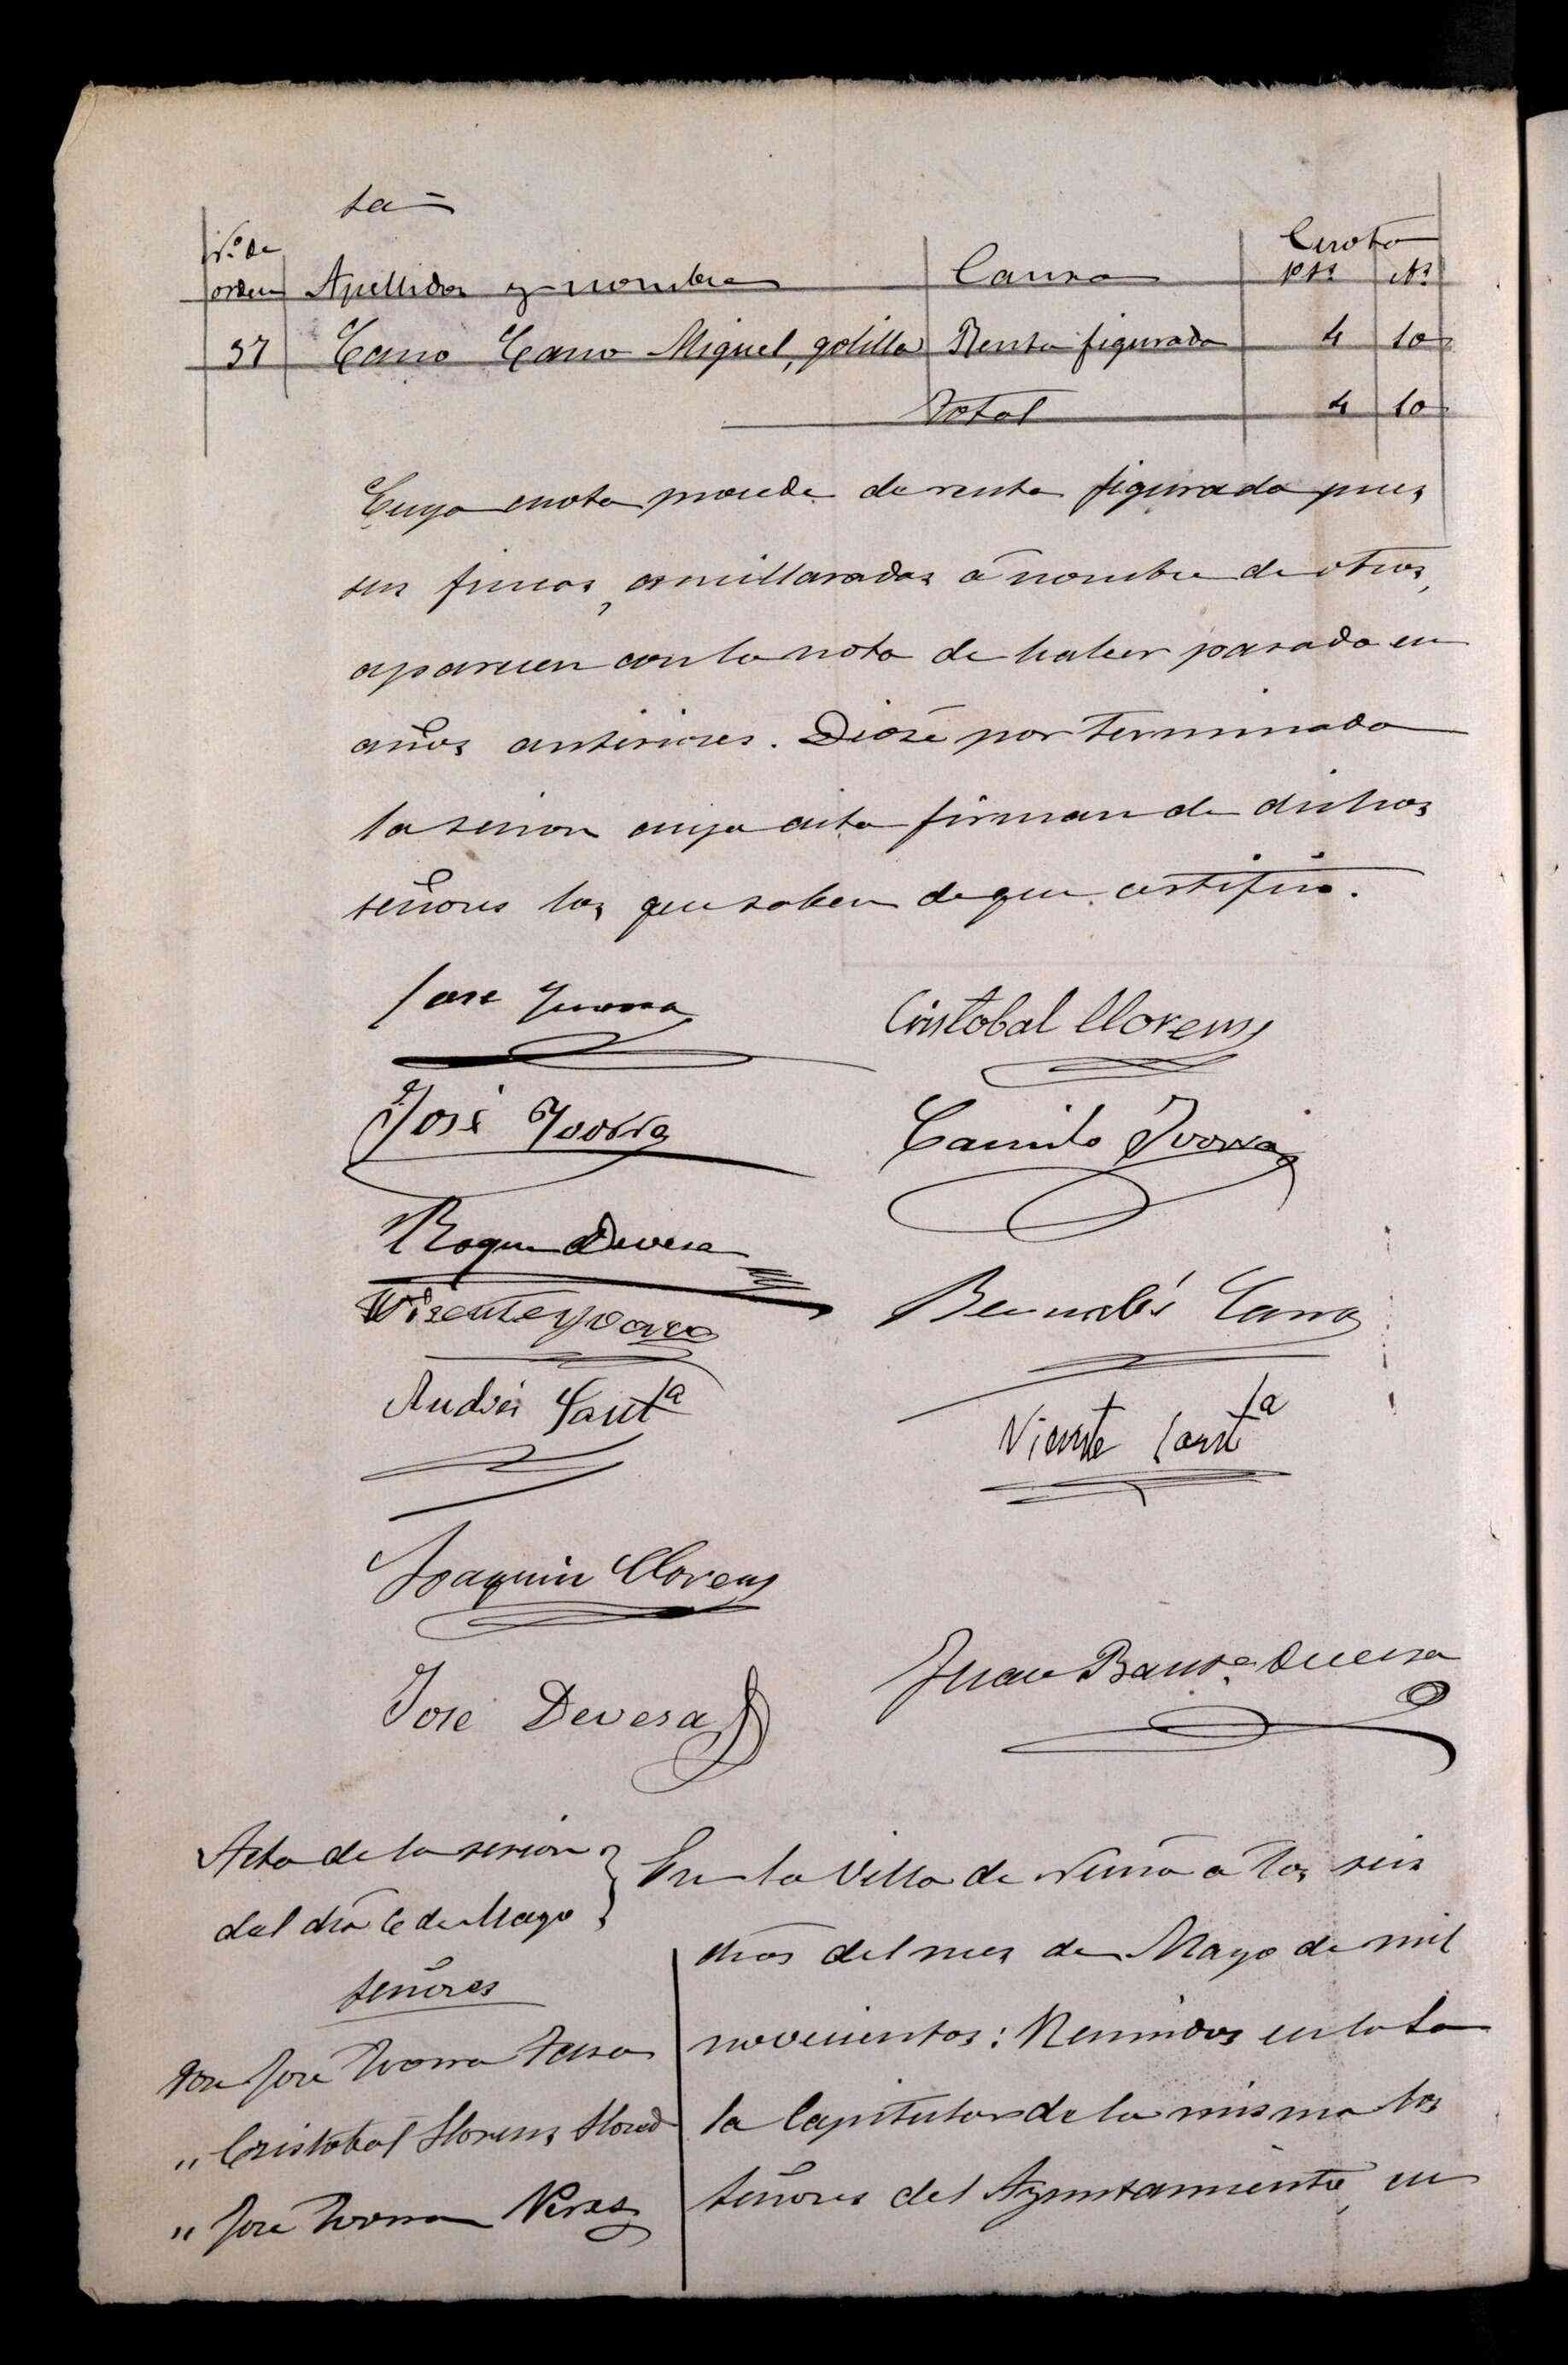 ta=
Nº de
orden Apellidos y nombre Causa Cuota
pts cts
37 Cano Cano Miguel, golilla Renta figurada 4 10
Total 4 10
Cuya cuota procede de renta figurada pues
sus fincas, amillaradas á nombre de otros,
aparecen con la nota de haber pasado en
años anteriores. Diose por terminada
la sesion cuya acta firman de dichos
señores los que saben de que certifico.
Jose Yvorra Cristobal Llorens
José Yvorra Camilo Ivorra
Roque Devesa
Visente Yvorra Bernabé Cano
Andrés Santª Vicente Santª
Joaquin Llorens
José Devesa Juan Bautª Devesa
Acta de la sesion
del dia 6 de Mayo
Señores
Don José Ivorra
" Cristobal Llorens
" José Ivorra Perez
En la Villa de á los seis
dias del mes de Mayo de mil
novecientos: Reunidos en la Sa
la Capitular de la misma los
señores del Ayuntamiento, en